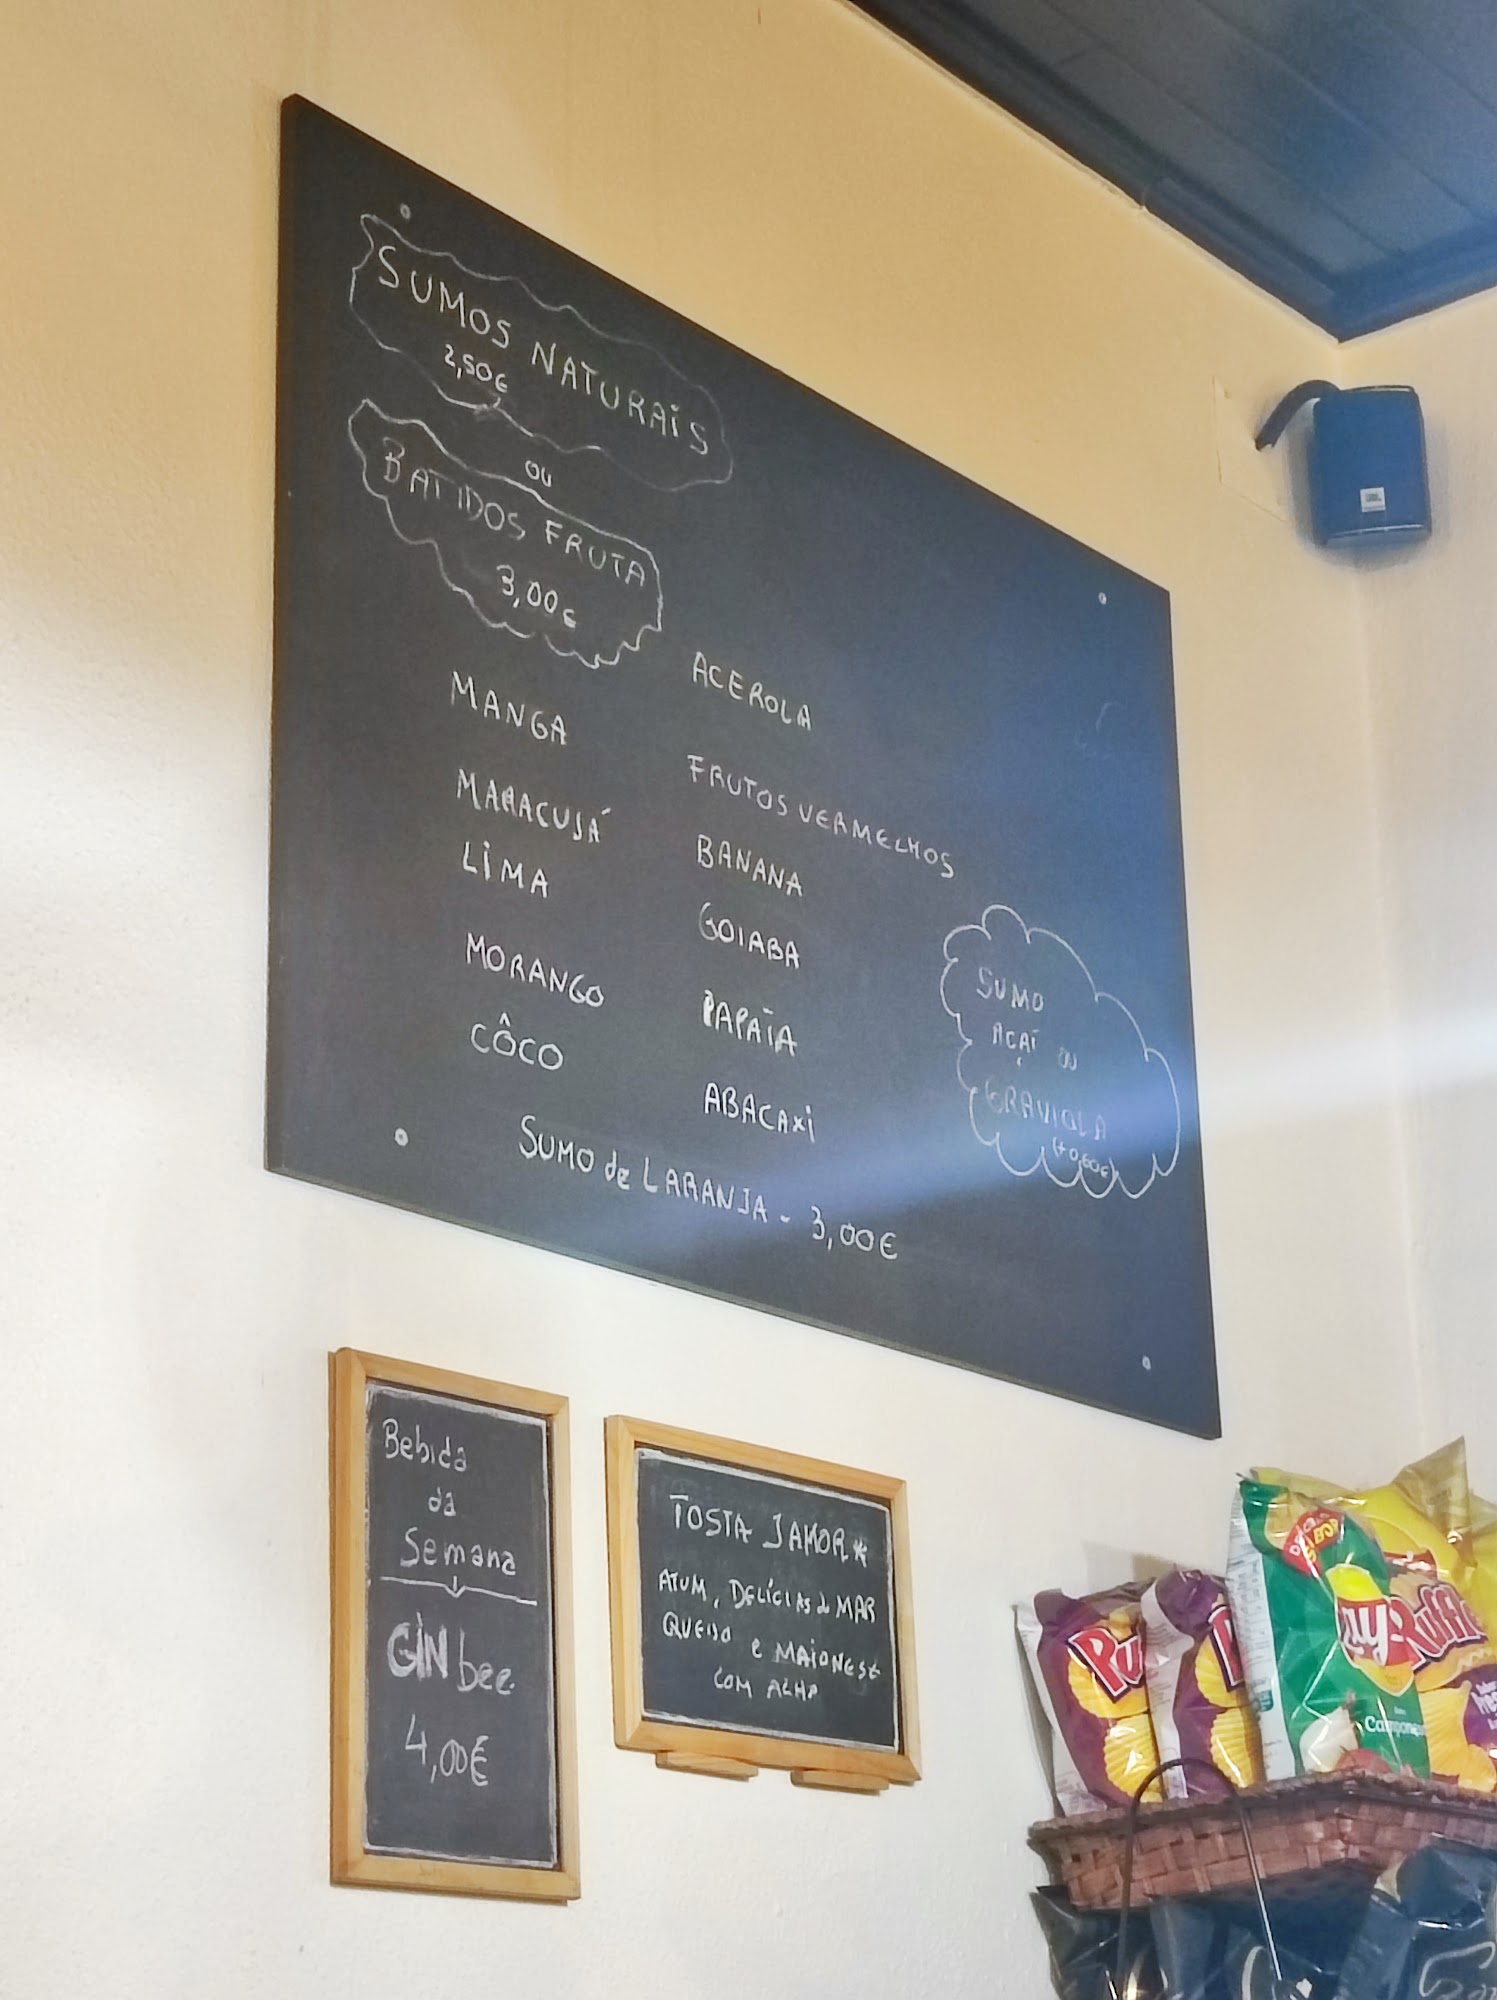 SUMOS NATURAIS
2,50€
OU
BATIDOS FRUTA
3,00€
MANGA
MARACUJÁ
LIMA
MORANGO
CÔCO
ACEROLA
FRUTOS VERMELHOS
BANANA
GOIABA
PAPAIA
ABACAXI
SUMO
AÇAÍ OU
GRAVIOLA
(+0,60€)
SUMO de LARANJA - 3,00€
Bebida
da
Semana
GIN bee
4,00€
TOSTA JAMOR*
ATUM, DELÍCIAS do MAR
QUEIJO E MAIONESE
COM ALHO
JBL
SABOR
Lay's
Ruffle
Campones
Ru